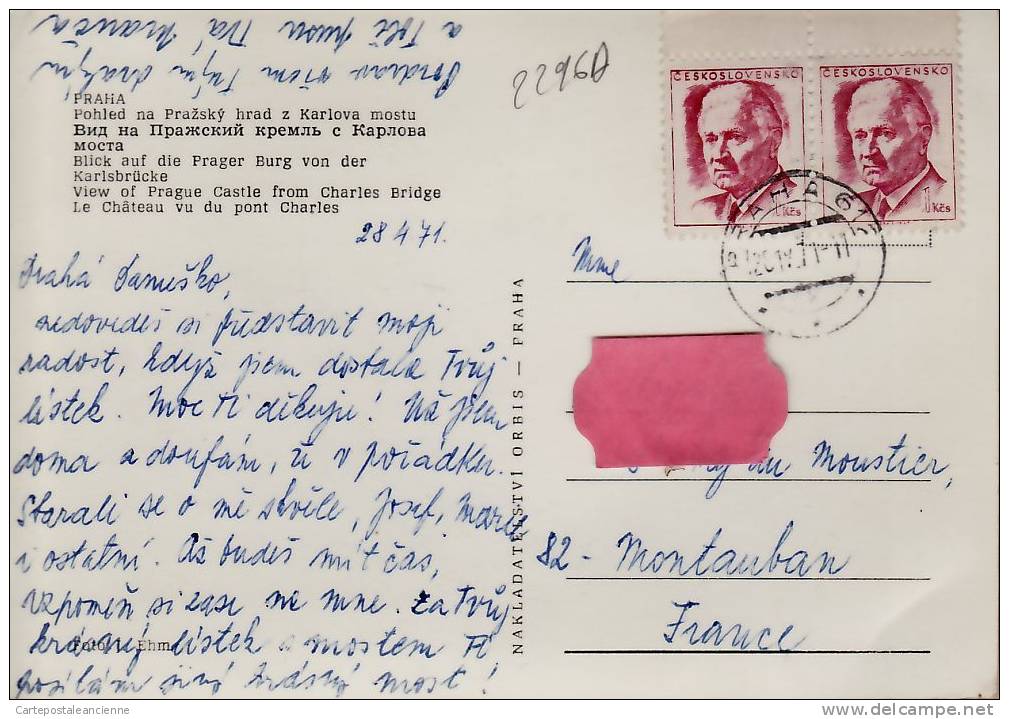 Pozdrav všem Tvým drahým
a Tobě pusu Tvá
22620
ČESKOSLOVENSKO
ČESKOSLOVENSKO
1 Kčs
1 Kčs
PRAHA 61
PRAHA
Pohled na Pražský hrad z Karlova mostu
Вид на Пражский кремль с Карлова
моста
Blick auf die Prager Burg von der
Karlsbrücke
View of Prague Castle from Charles Bridge
Le Château vu du pont Charles
28 4 71.
Drahá Danuško,
nedovedeš si představit moji
radost, když jsem dostala Tvůj
lístek. Moc Ti děkuju! Už jsem
doma a doufám, že v pořádku.
Starali se o mě skvěle, Josef,
i ostatní. Až budeš mít čas,
vzpomeň si zase na mne. Za Tvůj
krásný lístek s mostem Ti
posílám jiný krásný most!
Foto Ehm
NAKLADATELSTVÍ ORBIS — PRAHA
Mme
du Moustier,
82 - Montauban
France
Cartepostaleancienne
www.delcampe.net